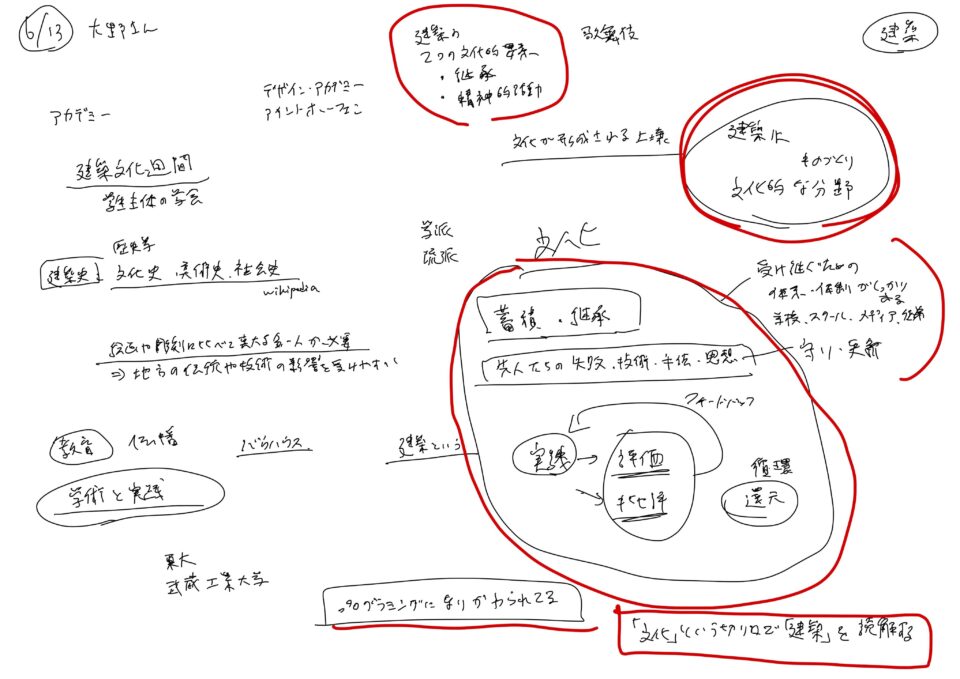 6/13 大野さん
建築の
2つの文化的要素
・継承
・精神的活動
歌舞伎
建築
デザイン・アカデミー
アイントホーフェン
アカデミー
文化が形成される土壌
建築は
ものづくり
文化的な分野
建築文化週間
学生主体の学会
学派
流派
文化
歴史学
建築史
文化史、美術史、社会史
wikipedia
受け継ぐための
体系・体制がしっかり
ある
学校、スクール、メディア、
蓄積・継承
絵画や彫刻にくらべて莫大なお金・人が必要
⇒地方の伝統や技術の影響を受けやすい
先人たちの失敗、技術・手法・思想
守り・
フィードバック
教育
バウハウス
建築という
実践
評価
批評
循環
還元
学術と実践
東大
武蔵工業大学
プログラミングになりかわられてる
「文化」という切り口で「建築」を読解する